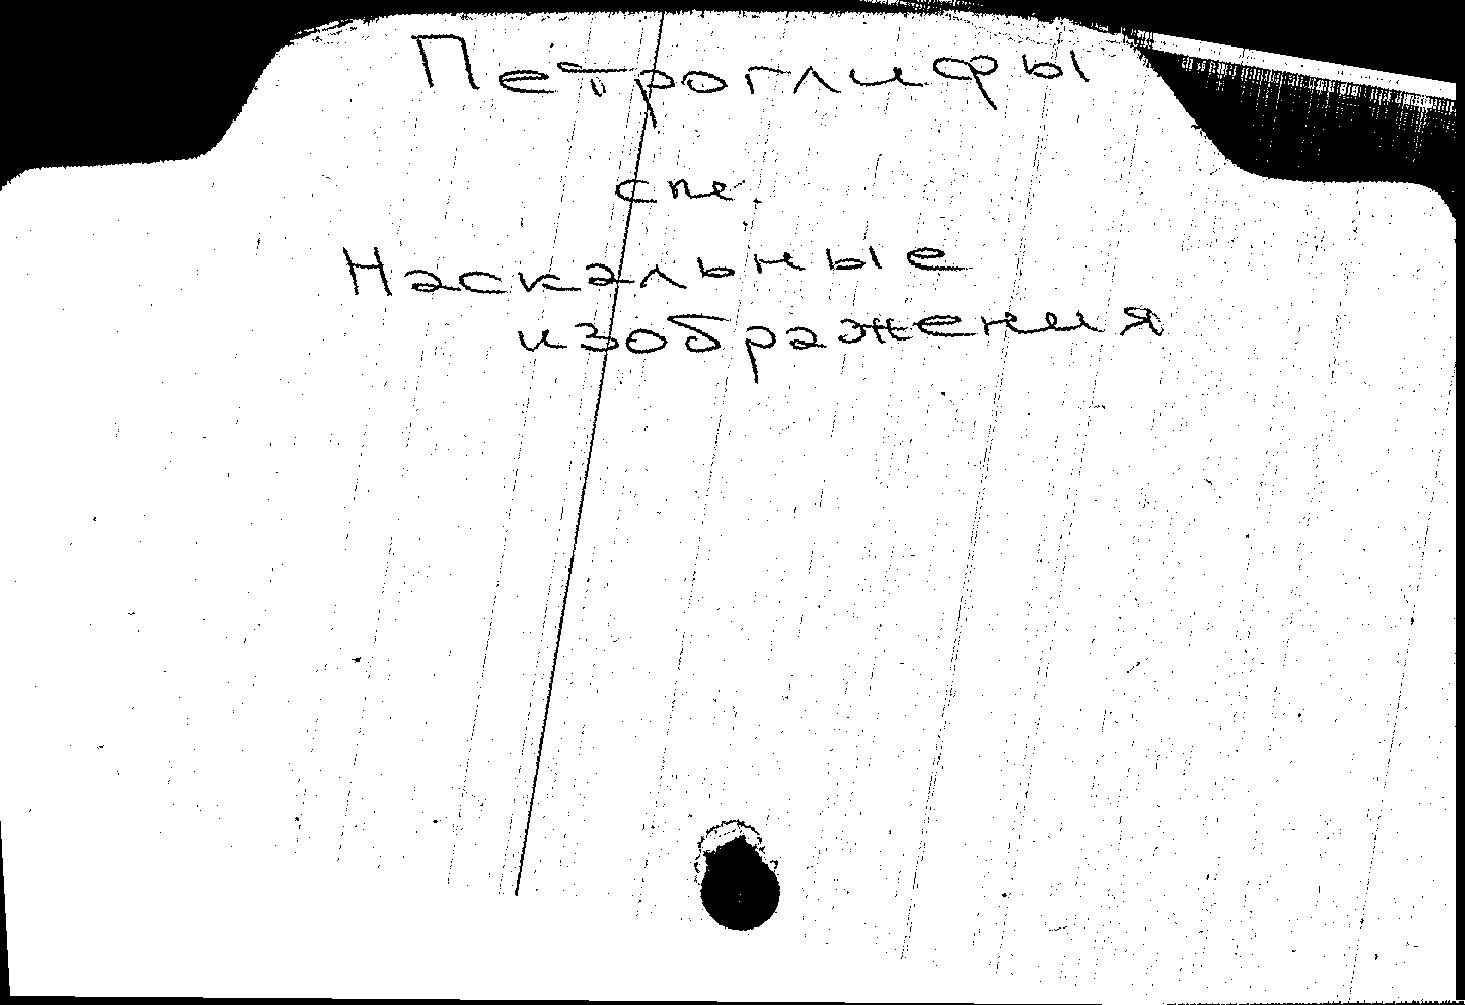 Петроглифы
см.
Наскальные
изображения